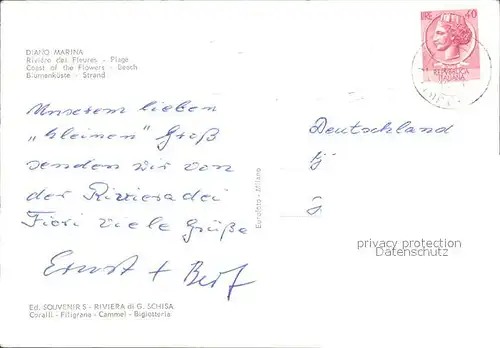 DIANO MARINA
Riviera dei Fleures - Plage
Coast of the Flowers - Beach
Blumenküste - Strand
LIRE 40
REPUBBLICA
ITALIANA
Unserem lieben
"kleinen" Groß
senden wir von
der Riviera dei
Fiori viele Grüße
Ernst +
Deutschland
Eurofoto - Milano
privacy protection
Datenschutz
Ed. SOUVENIRS - RIVIERA di G. SCHISA
Coralli - Filigrane - Cammei - Bigiotteria